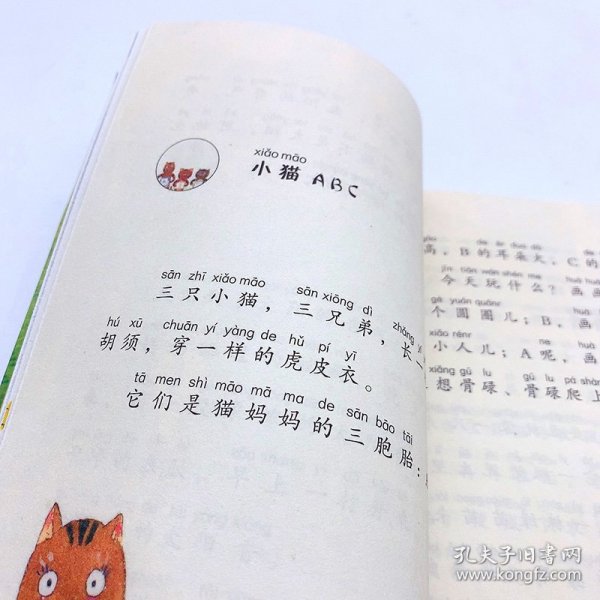 xiǎo māo
小猫 ABC
sān zhī xiǎo māo sān xiōng dì zhǎng yí
三只小猫，三兄弟，长一
hú xū chuān yí yàng de hǔ pí yī
胡须，穿一样的虎皮衣。
tā men shì māo mā ma de sān bāo tāi
它们是猫妈妈的三胞胎：
de ěr duo dà de
高，B的耳朵大，C的
jīn tiān wán shén me huà
今天玩什么？画画
gè yuán quānr huà
个圆圈儿；B，画
xiǎo rénr ne huà
小人儿；A呢，画
xiǎng gū lu gū lu pá shàng
想骨碌、骨碌爬上
孔夫子旧书网
www.kongfz.com